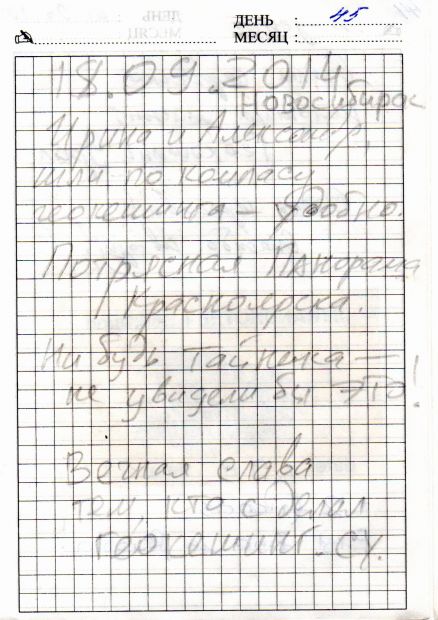 ДЕНЬ : 45
МЕСЯЦ :
18.09.2014
Новосибирск
Ирина и Александр,
шли по компасу
геокешинга – Удобно.
Потрясная Панорама
Красноярска.
Ни будь Тайника –
не увидели бы это!
Вечная слава
тем, кто сделал
геокешинг.су.